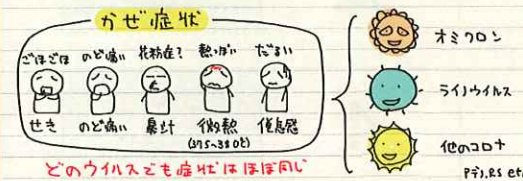 かぜ症状
ごほごほ のど痛い 花粉症? 熱っぽい だるい
せき のど痛い 鼻汁 微熱 倦怠感
(37.5~38.0℃)
どのウイルスでも症状はほぼ同じ
オミクロン
ライノウイルス
他のコロナ
アデノ,RS etc